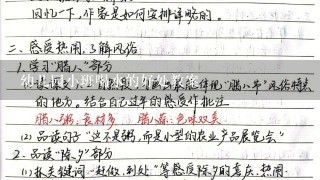 回忆一下,作家是如何安排详略的。
二、感受热闹,了解风俗
1.学习“腊八”部分
幼儿园小班喝水的好处教案
“腊八节”风俗特点
的地方。结合自己过年的感受作批注
腊八粥:食材多 腊八蒜:色味双美
(2)品读句子“这不是粥,而是小型的农业产品展览会”
2.品读“除夕”部分
(1)抓关键词“赶做、到处”等感受除夕的喜庆、热闹